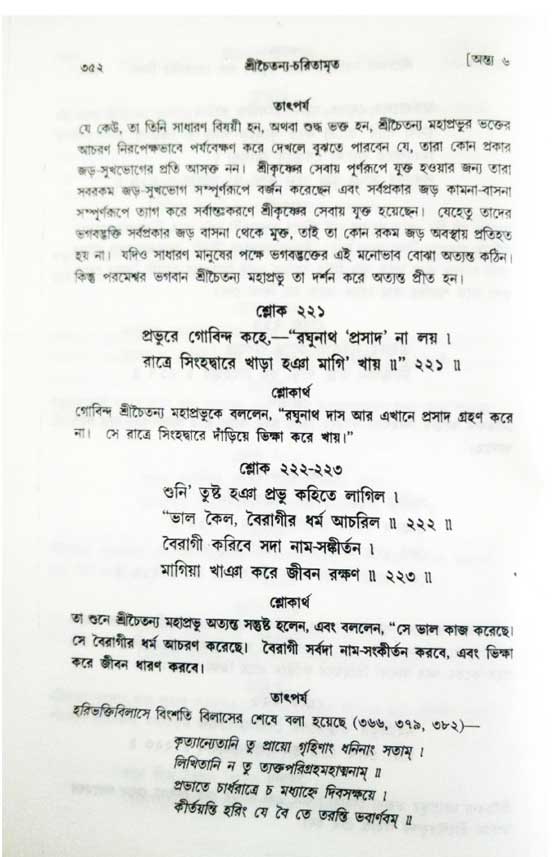 ৩৫২ শ্রীচৈতন্য-চরিতামৃত [অন্ত্য ৬
তাৎপর্য
যে কেউ, তা তিনি সাধারণ বিষয়ী হন, অথবা শুদ্ধ ভক্ত হন, শ্রীচৈতন্য মহাপ্রভুর ভক্তের
আচরণ নিরপেক্ষভাবে পর্যবেক্ষণ করে দেখলে বুঝতে পারবেন যে, তারা কোন প্রকার
জড়-সুখভোগের প্রতি আসক্ত নন। শ্রীকৃষ্ণের সেবায় পূর্ণরূপে যুক্ত হওয়ার জন্য তারা
সবরকম জড়-সুখভোগ সম্পূর্ণরূপে বর্জন করেছেন এবং সর্বপ্রকার জড় কামনা-বাসনা
সম্পূর্ণরূপে ত্যাগ করে সর্বান্তঃকরণে শ্রীকৃষ্ণের সেবায় যুক্ত হয়েছেন। যেহেতু তাদের
ভগবদ্ভক্তি সর্বপ্রকার জড় বাসনা থেকে মুক্ত, তাই তা কোন রকম জড় অবস্থায় প্রতিহত
হয় না। যদিও সাধারণ মানুষের পক্ষে ভগবদ্ভক্তের এই মনোভাব বোঝা অত্যন্ত কঠিন।
কিন্তু পরমেশ্বর ভগবান শ্রীচৈতন্য মহাপ্রভু তা দর্শন করে অত্যন্ত প্রীত হন।
শ্লোক ২২১
প্রভুরে গোবিন্দ কহে,—“রঘুনাথ ‘প্রসাদ’ না লয় ।
রাত্রে সিংহদ্বারে খাড়া হঞা মাগি’ খায় ॥” ২২১ ॥
শ্লোকার্থ
গোবিন্দ শ্রীচৈতন্য মহাপ্রভুকে বললেন, “রঘুনাথ দাস আর এখানে প্রসাদ গ্রহণ করে
না। সে রাত্রে সিংহদ্বারে দাঁড়িয়ে ভিক্ষা করে খায়।”
শ্লোক ২২২-২২৩
শুনি’ তুষ্ট হঞা প্রভু কহিতে লাগিল ।
“ভাল কৈল, বৈরাগীর ধর্ম আচরিল ॥ ২২২ ॥
বৈরাগী করিবে সদা নাম-সঙ্কীর্তন ।
মাগিয়া খাঞা করে জীবন রক্ষণ ॥ ২২৩ ॥
শ্লোকার্থ
তা শুনে শ্রীচৈতন্য মহাপ্রভু অত্যন্ত সন্তুষ্ট হলেন, এবং বললেন, “সে ভাল কাজ করেছে।
সে বৈরাগীর ধর্ম আচরণ করেছে। বৈরাগী সর্বদা নাম-সংকীর্তন করবে, এবং ভিক্ষা
করে জীবন ধারণ করবে।
তাৎপর্য
হরিভক্তিবিলাসে বিংশতি বিলাসের শেষে বলা হয়েছে (৩৬৬, ৩৭৯, ৩৮২)—
কৃত্যান্যেতানি তু প্রায়ো গৃহিণাং ধনিনাং সতাম্ ।
লিখিতানি ন তু ত্যক্তপরিগ্রহমহাত্মনাম্ ॥
প্রভাতে চার্ধরাত্রে চ মধ্যাহ্নে দিবসক্ষয়ে ।
কীর্তয়ন্তি হরিং যে বৈ তে তরন্তি ভবার্ণবম্ ॥